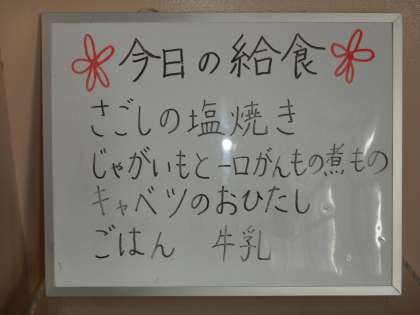 今日の給食
さごしの塩焼き
じゃがいもと一口がんもの煮もの
キャベツのおひたし
ごはん 牛乳